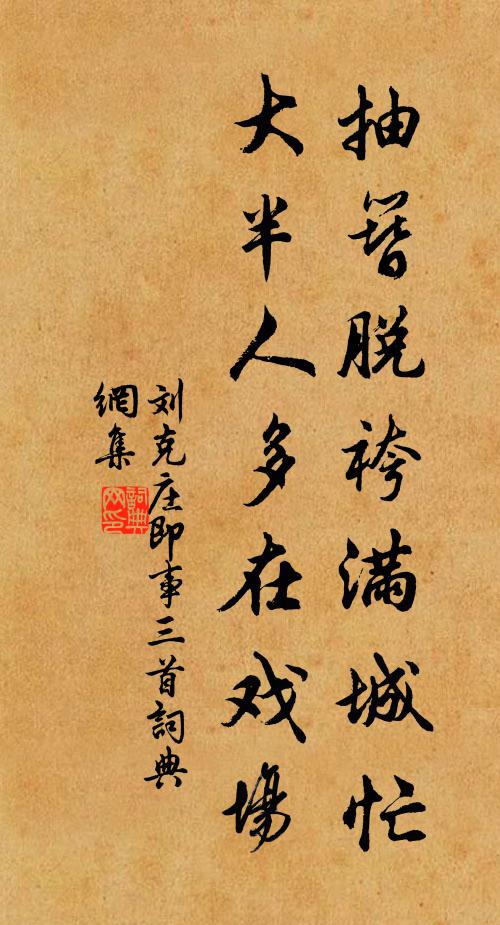 抽簪脱袴满城忙
大半人多在戏場
刘克庄即事三首詞典
網集
詞典
网印